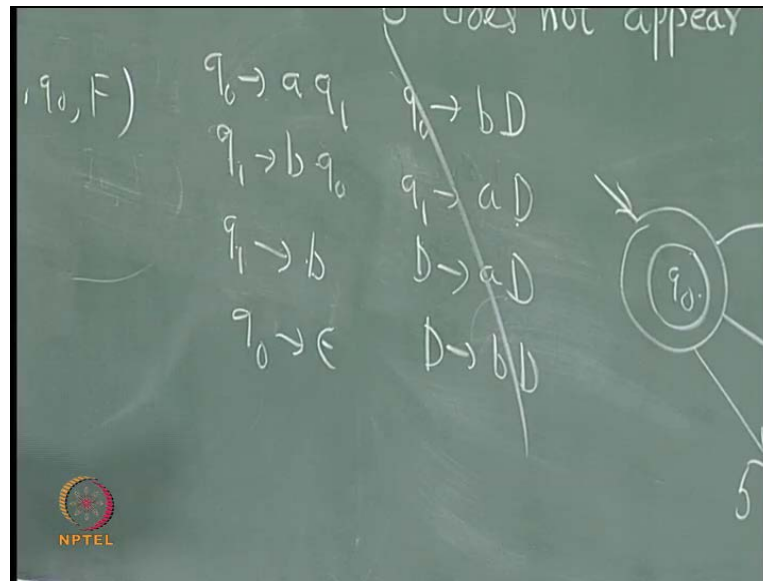 does not appear
, q₀, F)
q₀ → a q₁
q₁ → b q₀
q₁ → b
q₀ → ϵ
q₀ → b D
q₁ → a D
D → a D
D → b D
q₀.
NPTEL